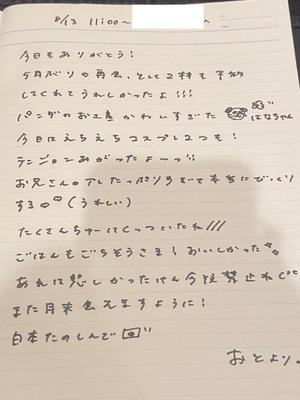 8/13 11:00〜
今日もありがとう!
5月ぶりの再会、そして2枠も予約
してくれてうれしかったよ!!!
パンダのお土産かわいすぎた はなちゃん
今日はえちえちコスプレ2つも!
テンションあがったよ〜っ!!
お兄さんのアレたっぷりすぎて本当にびっくり
する(うれしい)
たくさんちゅーしてくっついたね///
ごはんもごちそうさま!おいしかった
あれは悲しかったけん今後禁止ね
また月末会えますように!
日本たのしんで
おとより